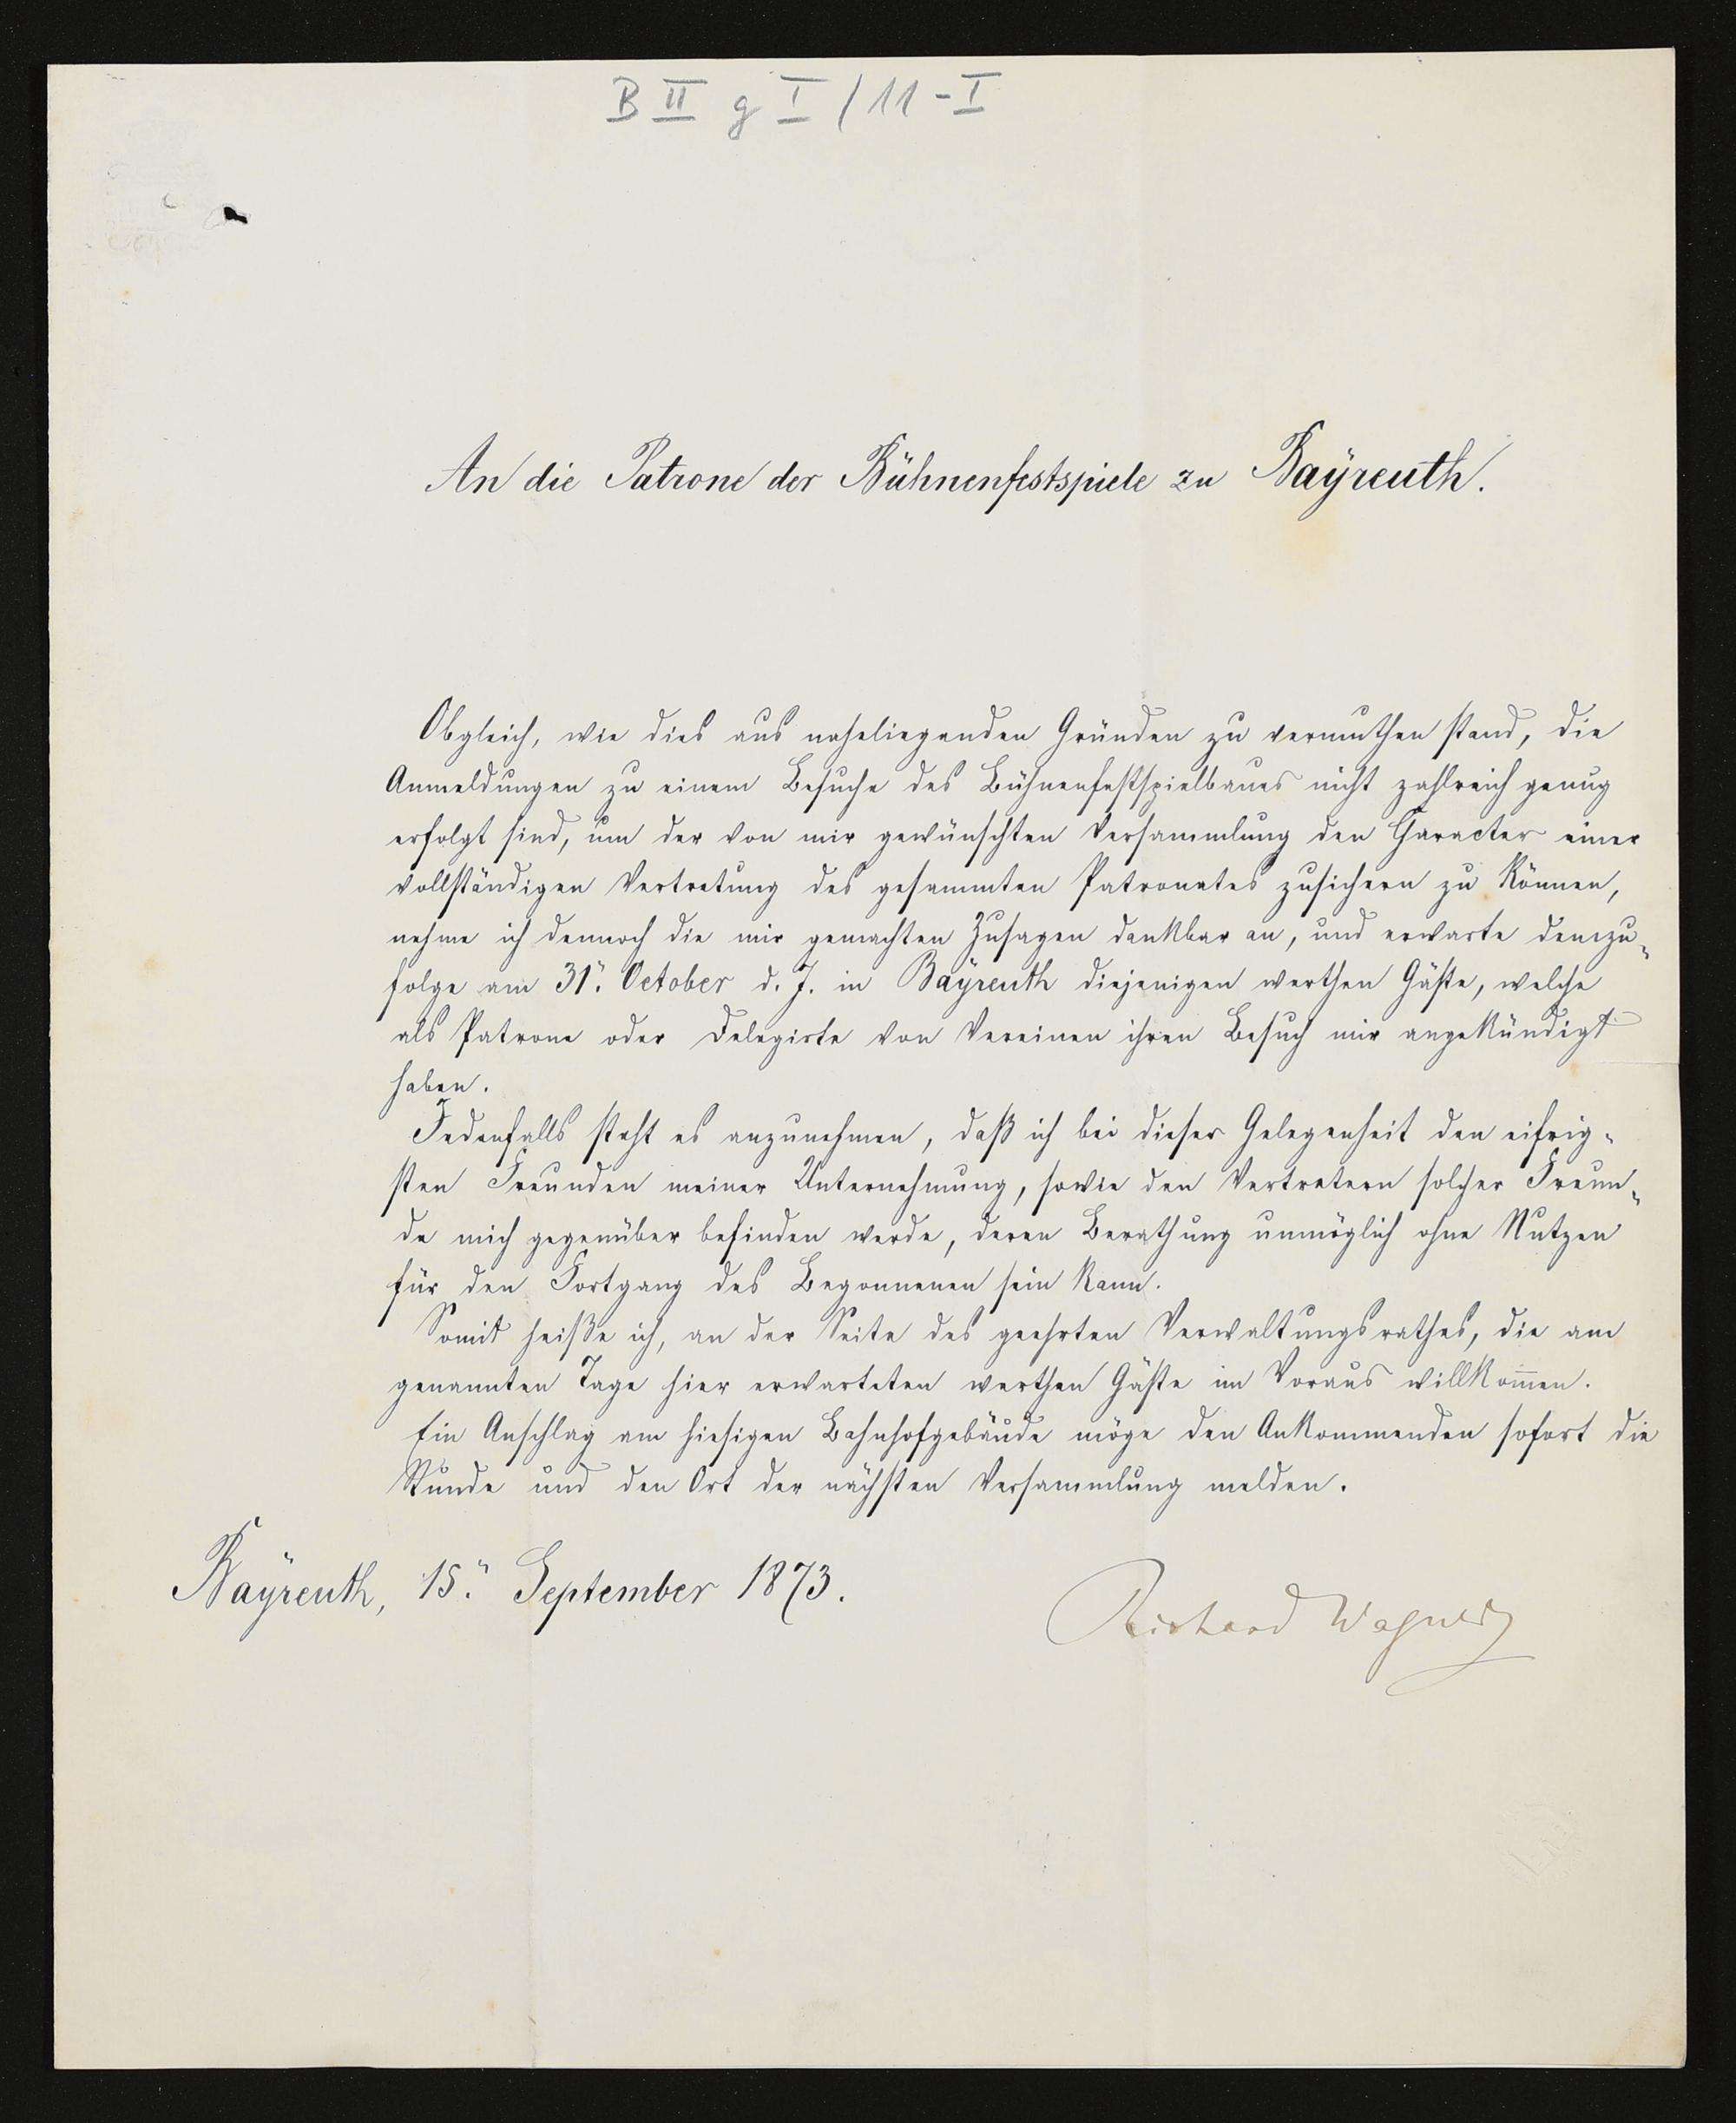 B II g I / 11 - I
An die Patrone der Bühnenfestspiele zu Bayreuth.
Obgleich, wie dies aus naheliegenden Gründen zu vermuthen stand, die
Anmeldungen zu einem Besuche des Bühnenfestspielbaues nicht zahlreich genug
erfolgt sind, um der von mir gewünschten Versammlung den Character einer
vollständigen Vertretung des gesammten Patronates zusichern zu können,
nehme ich dennoch die mir gemachten Zusagen dankbar an, und erwarte demzu-
folge am 31". October d. J. in Bayreuth diejenigen werthen Gäste, welche
als Patrone oder Delegirte von Vereinen ihren Besuch mir angekündigt
haben.
Jedenfalls steht es anzunehmen, daß ich bei dieser Gelegenheit den eifrig-
sten Freunden meiner Unternehmung, sowie den Vertretern solcher Freun-
de mich gegenüber befinden werde, deren Berathung unmöglich ohne Nutzen
für den Fortgang des Begonnenen sein kann.
Somit heiße ich, an der Seite des geehrten Verwaltungsrathes, die am
genannten Tage hier erwarteten werthen Gäste im Voraus willkom̄en.
Ein Anschlag am hiesigen Bahnhofgebäude möge den Ankommenden sofort die
Stunde und den Ort der nächsten Versammlung melden.
Bayreuth, 15". September 1873.
Richard Wagner